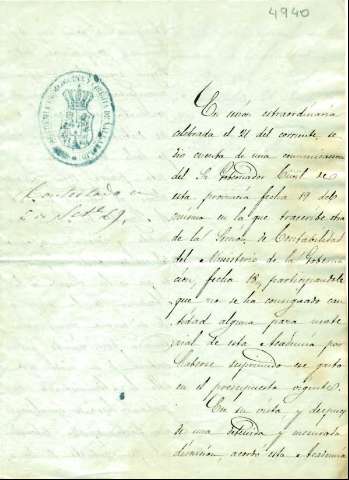 4940
Contestada en
En sesion extraordinaria
celebrada el 24 del corriente, se
dió cuenta de una comunicacion
del Sr. Gobernador Civil de
esta provincia fecha 19 del
mismo en la que transcribe otra
de la Seccion de Contabilidad
del Ministerio de la Goberna
cion, fecha 18, participandole
que no se ha consignado can
tidad alguna para mate
rial de esta Academia por
haberse suprimido ese gasto
en el presupuesto vigente.
En su vista y despues
de una detenida y mesurada
discusion, acordó esta Academia